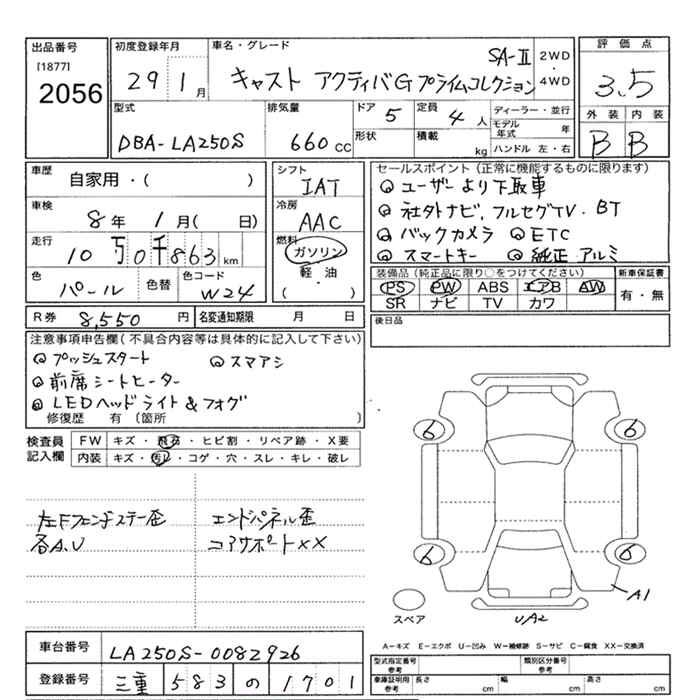 出品番号
[1877]
2056
初度登録年月
29 1月
車名・グレード
キャスト アクティバG プライムコレクション SA-Ⅱ
2WD
・
4WD
評価点
3.5
外装 内装
B B
型式
DBA-LA250S
排気量
660 CC
ドア 5
形状
定員 4人
積載 kg
ディーラー・並行
モデル年式 年
ハンドル 左・右
車歴
自家用・( )
車検
8年 1月( 日)
走行
10万0千863 km
色
パール
色替
色コード
W24
シフト
IAT
冷房
AAC
燃料
ガソリン
軽・油
( ・ )
セールスポイント(正常に機能するものに限ります)
◎ユーザーより下取車
◎社外ナビ.フルセグTV.BT
◎バックカメラ ◎ETC
◎スマートキー ◎純正アルミ
装備品(純正品に限り○をつけてください)
PS PW ABS エアB AW
SR ナビ TV カワ
新車保証書
有・無
R券 8,550円
名変通知期限 月 日
後日品
注意事項申告欄(不具合内容等は具体的に記入して下さい)
◎プッシュスタート ◎スマアシ
◎前席シートヒーター
◎LEDヘッドライト&フォグ
修復歴 有(箇所 )
検査員記入欄
FW キズ・飛石・ヒビ割・リペア跡・X要
内装 キズ・汚レ・コゲ・穴・スレ・キレ・破レ
左Fフェンダステー歪 エンドパネル歪
各A.U コアサポートXX
6 6
6 6
A1
UA2
スペア
A=キズ E=エクボ U=凹み W=補修跡 S=サビ C=腐食 XX=交換済
車台番号 LA250S-0082926
登録番号 三重 583 の 1701
型式指定番号 参考
類別区分番号 参考
車庫証明用 参考
長さ cm 幅 cm 高さ cm